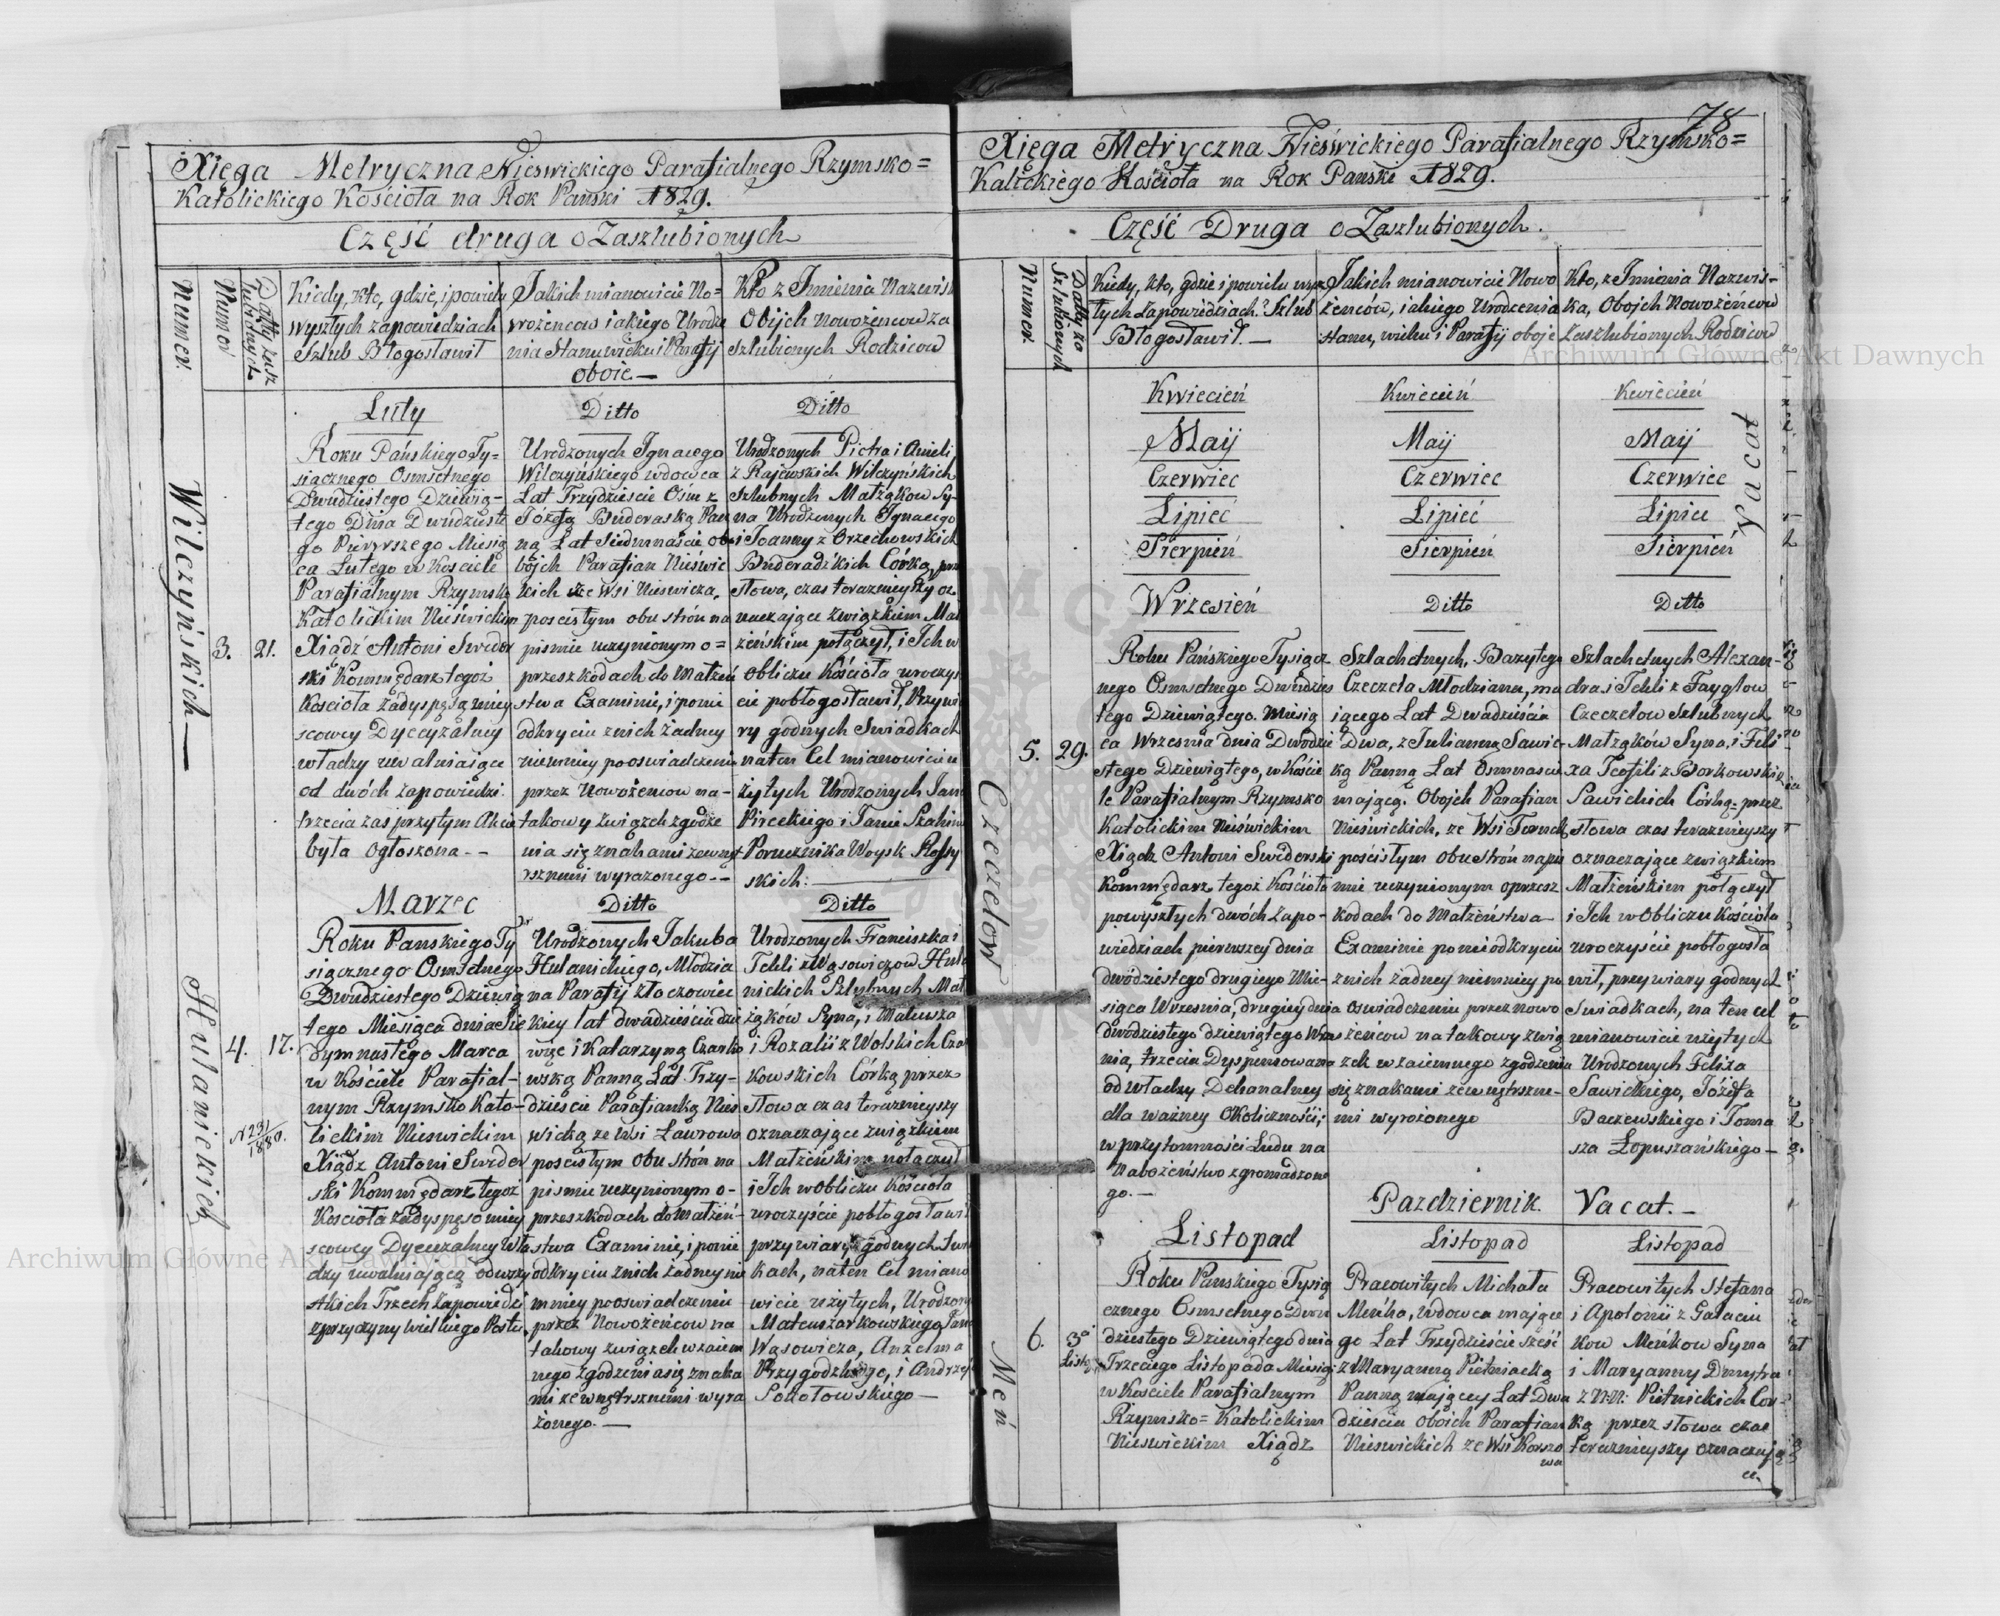 Xięga Metryczna Nieswickiego Parafialnego Rzymsko=
Katolickiego Kościoła na Rok Pański 1829.
Część druga o Zaszlubionych
Numer.
Numer
Datty zasz
lubionych
Kiedy, kto, gdzie, i powielu
wyszłych zapowiedziach
Szlub Błogosławił
Jakich mianowicie No=
wożencow iakiego Urodze
nia Stanu wieku i Parafij
oboie—
Kto z Imienia Nazwisk
Obojch Nowożencow Za
szlubionych Rodzicow
Luty
Ditto
Ditto
Wilczyńskich—
3.
21.
Roku Pańskiego Ty-
siącznego Osmsetnego
Dwudziestego Dziewią-
tego Dnia Dwudzieste
go Pierwszego Miesią
ca Lutego w Kosciele
Parafialnym Rzymsko
Katolickim Nieświckim
Xiądz Antoni Swider
ski Kommędarz tegoż
Kościoła zadyspęsą miey
scowey Dyecyzalney
władzy uwalniaiące
od dwóch zapowiedzi
trzecia zas przytym Akcie
była ogłoszona--
Urodzonych Ignacego
Wilczyńskiego wdowca
Lat Trzydzieście Ośm z
Józefą Buderaską Pan
ną Lat Siedmnaście obo
bójch Parafian Nieświc
kich ze Wsi Nieświcza,
zposcisłym obu strón na
pismie uczynionym o=
przeszkodach do Małżeń
stwa Examinie, i ponie
odkryciu znich żadney
niemniey pooswiadczeniu
przez Nowożencow na-
takowy związek zgodze
nia się znakami zewnę
rsznemi wyrażonego--
Urodzonych Piotra i Anieli
z Rajewskich Wilczyńskich
szlubnych Małżąkow Sy-
na Urodzonych Ignacego
i Joanny z Orzechowskich
Buderadźkich Córką, prze
słowa, czas teraznieyszy oz
naczające związkiem Mał
żeńskim połączył, i Ich w
obliczu Kościoła uroczys
cie pobłogosławił, Przy wia
ry godnych Swiadkach
naten Cel mianowicie u
żytych Urodzonych Jana
Pireckiego i Jana Szahina
Porucznika Woysk Rossy
skich.
Marzec
Ditto
Ditto
Hulanickich
4.
17.
N 231
1880.
Roku Panskiego Ty
siącznego Osmsetnego
Dwudziestego Dziewią
tego Miesiąca dnia Sie
dymnastego Marca
w Kościele Parafial-
nym Rzymsko Kato-
lickim Nieswickim
Xiądz Antoni Swider
ski Kommędarz tegoż
Kościoła zadyspęsą miey
scowey Dyecezalney Wła
dzy uwalniaiącą odwszy
stkich Trzech Zapowiedzi
zprzyczyny wielkiego Postu.
Urodzonych Jakuba
Hulanickiego, Młodzia
na Parafij Złoczowiec
kiey lat dwadzieścia dzie
więc i Katarzyną Czarko
wską Panną Lat Trzy-
dzieście Parafianką Nies
wicką ze Wsi Ławrowa
poscisłym obu strón na
pismie uczynionym o-
przeszkodach do Małżeń-
stwa Examinie, i ponie
odkryciu znich żadney nie
mniey pooswiadczeniu
przez Nowożencow na
takowy związek wzaiem
nego zgodzenia się znaka
mi zewnętrsznemi wyra
żonego.—
Urodzonych Franciszka i
Tekli z Wąsowiczow Hula
nickich Szlubnych Mał
żąkow Syna, i Mateusza
i Rozalii z Wolskich Czar
kowskich Córką przez
Słowa czas teraznieyszy
oznaczające związkiem
Małżeńskim połączył
i Ich w Obliczu Kościoła
uroczyście pobłogosławił
przy wiary godnych Swia
kach, naten Cel miano
wicie użytych, Urodzony
Mateusza
Wąsowicza, Anzelma
Przygodzkiego, i Andrzej
Sokołowskiego—
78
Xięga Metryczna Nieświckiego Parafialnego Rzymsko=
Kalickiego Kościoła na Rok Pański 1829.
Część Druga o Zaszlubionych.
Numer.
Datty za
Szlubionych
Kiedy, kto, gdzie i powielu wysz
łych Zapowiedziach? Szlub
Błogosławił.—
Jakich mianowicie Nowo
żenców, iakiego Urodzenia
Stanu, wieku i Parafij oboje
Kto, z Imienia Nazwis-
ka, Obojch Nowożencow
Zaszlubionych Rodzicow
Kwiecień
Kwiecień
Kwiecień
Maij
Maij
Maij
Czerwiec
Czerwiec
Czerwiec
Lipiec
Lipieć
Lipiec
Sierpień
Sierpień
Sierpień
Vacat
Wrzesień
Ditto
Ditto
Czeczelow
5.
29.
Roku Pańskiego Tysiącz
nego Osmsetnego Dwudzies
tego Dziewiątego. Miesią
ca Wrzesnia dnia Dwodzie
stego Dziewiątego, w Koście
le Parafialnym Rzymsko
Katolickim Nieświckim
Xiądz Antoni Swiderski
Kommędarz tegoż Kościoła
powyszłych dwóch Zapo-
wiedziach pierwszey dnia
dwódziestego drugiego Mie-
siąca Wrzesnia, drugiey dnia
dwódziestego dziewiątego Wrześ
nia, trzecia Dyspensowana
od władzy Dekanalney
dla ważney Okoliczności;
w przytomności Ludu na
Nabożeństwo zgromadzone
go.—
Szlachetnych, Bazylego
Czeczela Młodziana, ma
iącego Lat Dwadzieścia
Dwa, z Julianną Sawic-
ką Panną Lat Osmnascie
mającą. Obojch Parafian
Nieświckich, ze Wsi Torock
pościsłym obu strón na pis
mie uczynionym oprzesz
kodach do Małżeństwa
Examinie po nieodkryciu
znich żadney niemniey po
oswiadczeniu przez Nowo
żeńców na takowy zwią
zek wzaiemnego zgodzenia
się znakami zewnętrszne-
mi wyrożonego
Szlachetnych Alexan-
dra i Tekli z Fayglow
Czeczelow Szlubnych
Małżąków Syna, i Feli
xa Teofili z Borkowskich
Sawickich Córką- przez
słowa czas teraznieyszy
oznaczające związkiem
Małżeńskim połączył
i Ich w Obliczu Kościoła
uroczyście pobłogosła
wił, przy wiary godnych
Swiadkach, na ten cel
mianowicie użytych
Urodzonych Felixa
Sawickiego, Józefa
Baczewskiego i Toma
sza Łopuszańskiego—
Pazdziernik.
Vacat.—
Listopad
Listopad
Listopad
Meń
6.
3°
Listop.
Roku Pańskiego Tysią
cznego Osmsetnego Dwu
dziestego Dziewiątego dnia
Trzeciego Listopada Miesią
w Kosciele Parafialnym
Rzymsko=Katolickim
Nieswickim Xiądz
Pracowitych Michała
Meńko, Wdowca mające
go Lat Trzydzieście sześć
z Maryanną Pietniacką
Panną mającey Lat Dwa
dzieścia oboich Parafian
Nieswickich ze Wsi Korszo
wa
Pracowitych Stefana
i Apolonii z Galaciu
kow Meńkow Syna
i Maryanny Dmytra
z N:N: Pietnickich Cor-
ką przez słowa czas
teraznieyszy oznaczają
ce.
Archiwum Główne Akt Dawnych
Archiwum Główne Akt Dawnych